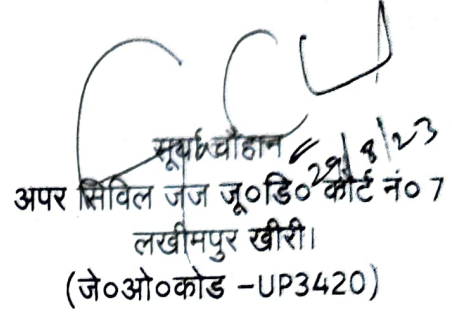 सूर्या चौहान
29/8/23
अपर सिविल जज जू०डि० कोर्ट नं० 7
लखीमपुर खीरी।
(जे०ओ०कोड -UP3420)